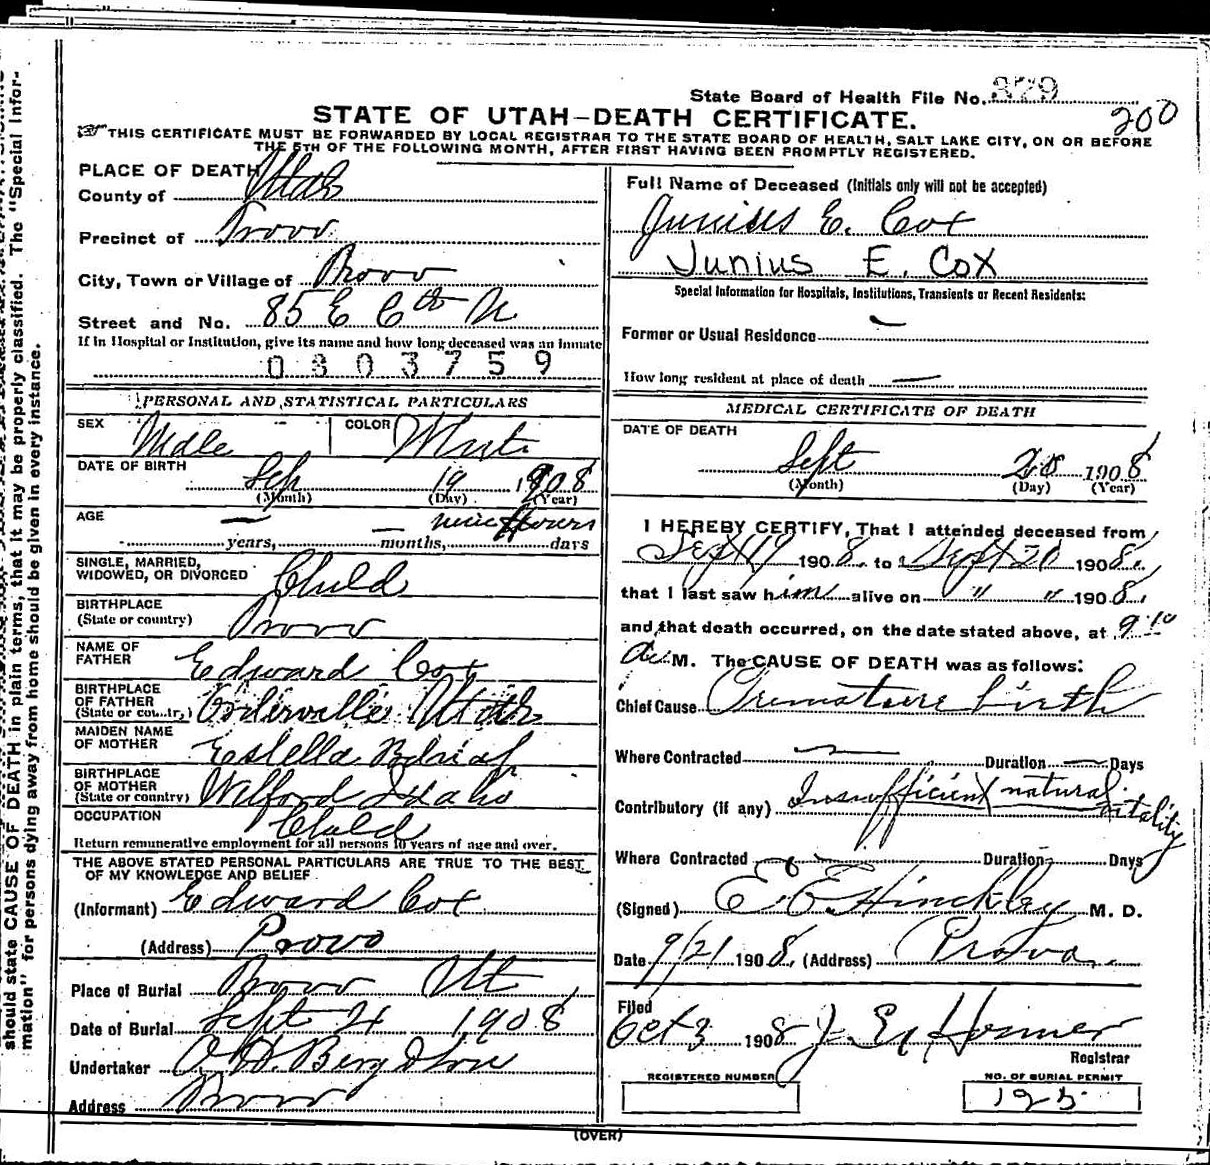 should state CAUSE OF DEATH in plain terms, that it may be properly classified. The "Special Infor-
mation" for persons dying away from home should be given in every instance.
State Board of Health File No. 329
200
STATE OF UTAH-DEATH CERTIFICATE.
THIS CERTIFICATE MUST BE FORWARDED BY LOCAL REGISTRAR TO THE STATE BOARD OF HEALTH, SALT LAKE CITY, ON OR BEFORE
THE 5TH OF THE FOLLOWING MONTH, AFTER FIRST HAVING BEEN PROMPTLY REGISTERED.
PLACE OF DEATH
County of Utah
Precinct of Provo
City, Town or Village of Provo
Street and No. 85 E 6th N
If in Hospital or Institution, give its name and how long deceased was an inmate
0303759
PERSONAL AND STATISTICAL PARTICULARS
SEX Male COLOR White
DATE OF BIRTH
Sep 19 1908
(Month) (Day) (Year)
AGE nine hours
years, months, days
SINGLE, MARRIED,
WIDOWED, OR DIVORCED Child
BIRTHPLACE
(State or country) Provo
NAME OF
FATHER Edward Cox
BIRTHPLACE
OF FATHER
(State or country) Orderville Utah
MAIDEN NAME
OF MOTHER Estella
BIRTHPLACE
OF MOTHER
(State or country) Wilford Idaho
OCCUPATION Child
Return remunerative employment for all persons 10 years of age and over.
THE ABOVE STATED PERSONAL PARTICULARS ARE TRUE TO THE BEST
OF MY KNOWLEDGE AND BELIEF
(Informant) Edward Cox
(Address) Provo
Place of Burial Provo Ut
Date of Burial Sept 21 1908
Undertaker O. H. Berg & Son
Address Provo
Full Name of Deceased (Initials only will not be accepted)
Junius E. Cox
Junius E. Cox
Special Information for Hospitals, Institutions, Transients or Recent Residents:
Former or Usual Residence
How long resident at place of death
MEDICAL CERTIFICATE OF DEATH
DATE OF DEATH
Sept 20 1908
(Month) (Day) (Year)
I HEREBY CERTIFY, That I attended deceased from
Sept 19 1908, to Sept 20 1908,
that I last saw him alive on " " 1908,
and that death occurred, on the date stated above, at 9:10
a. M. The CAUSE OF DEATH was as follows:
Chief Cause Premature birth
Where Contracted Duration Days
Contributory (if any) Insufficient natural vitality
Where Contracted Duration Days
(Signed) E E Hinckley M. D.
Date 9/21 1908, (Address) Provo
Filed
Oct 3 1908 J. E. Homer
Registrar
REGISTERED NUMBER NO. OF BURIAL PERMIT
125
(OVER)